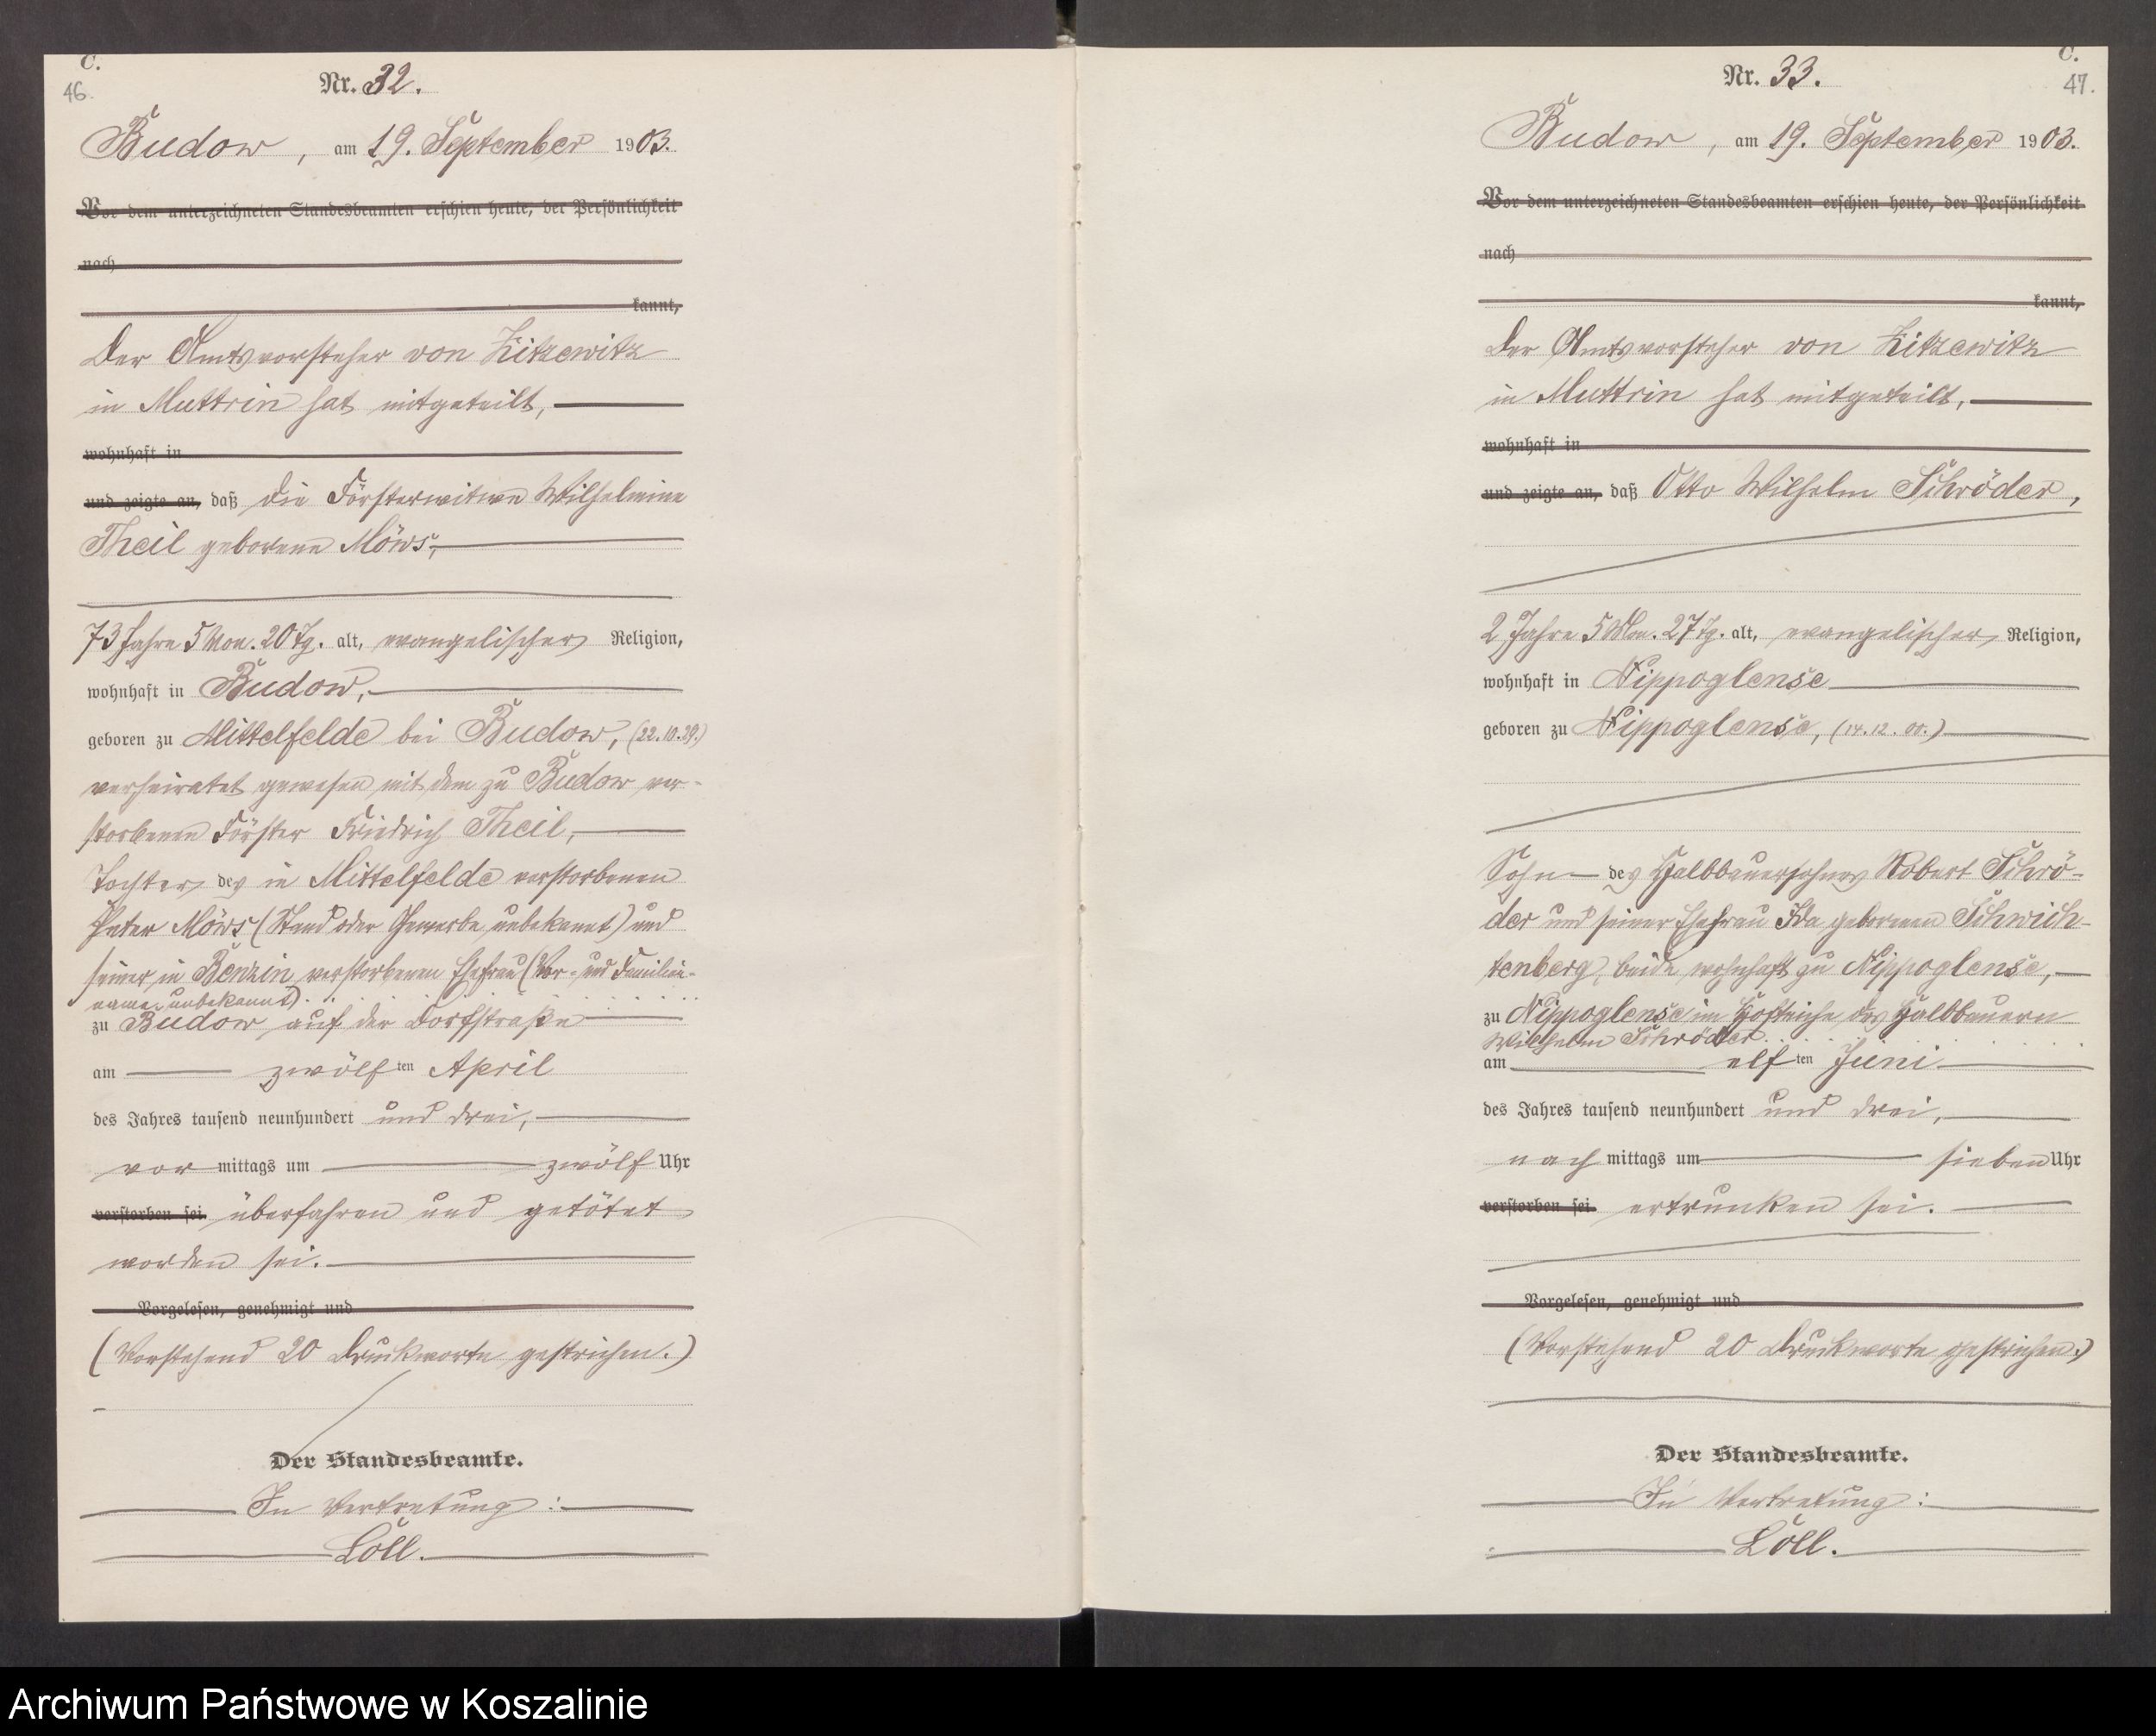 C.
46.
Nr. 32.
Budow, am 19. September 1903.
Vor dem unterzeichneten Standesbeamten erschien heute, der Persönlichkeit
nach
kannt,
Der Amtsvorsteher von Zitzewitz
in Muttrin hat mitgeteilt,
wohnhaft in
und zeigte an, daß die Försterwitwe Wilhelmine
Theil geborene Möws,
73 Jahre 5 Mon. 20 Tg. alt, evangelischer Religion,
wohnhaft in Budow,
geboren zu Mittelfelde bei Budow, (22.10.29.)
verheiratet gewesen mit dem zu Budow ver-
storbenen Förster Friedrich Theil,
Tochter des in Mittelfelde verstorbenen
Peter Möws (Stand oder Gewerbe unbekannt) und
seiner in Benzin verstorbenen Ehefrau (Vor- und Familien-
name unbekannt)
zu Budow auf der Dorfstraße
am zwölften April
des Jahres tausend neunhundert und drei,
vor mittags um zwölf Uhr
verstorben sei. überfahren und getötet
worden sei.
Vorgelesen, genehmigt und
(Vorstehend 20 Druckworte gestrichen.)
Der Standesbeamte.
In Vertretung:
Löll.
C.
47.
Nr. 33.
Budow, am 19. September 1903.
Vor dem unterzeichneten Standesbeamten erschien heute, der Persönlichkeit
nach
kannt,
Der Amtsvorsteher von Zitzewitz
in Muttrin hat mitgeteilt,
wohnhaft in
und zeigte an, daß Otto Wilhelm Schröder,
2 Jahre 5 Mon. 27 Tg. alt, evangelischer Religion,
wohnhaft in Nippoglense
geboren zu Nippoglense, (14.12.00.)
Sohn des Halbbauersohnes Robert Schrö-
der und seiner Ehefrau Ida geborenen Schwich-
tenberg, beide wohnhaft zu Nippoglense,
zu Nippoglense im Hofteiche des Halbbauern
Wilhelm Schröder
am elften Juni
des Jahres tausend neunhundert und drei,
nach mittags um sieben Uhr
verstorben sei. ertrunken sei.
Vorgelesen, genehmigt und
(Vorstehend 20 Druckworte gestrichen.)
Der Standesbeamte.
In Vertretung:
Löll.
Archiwum Państwowe w Koszalinie